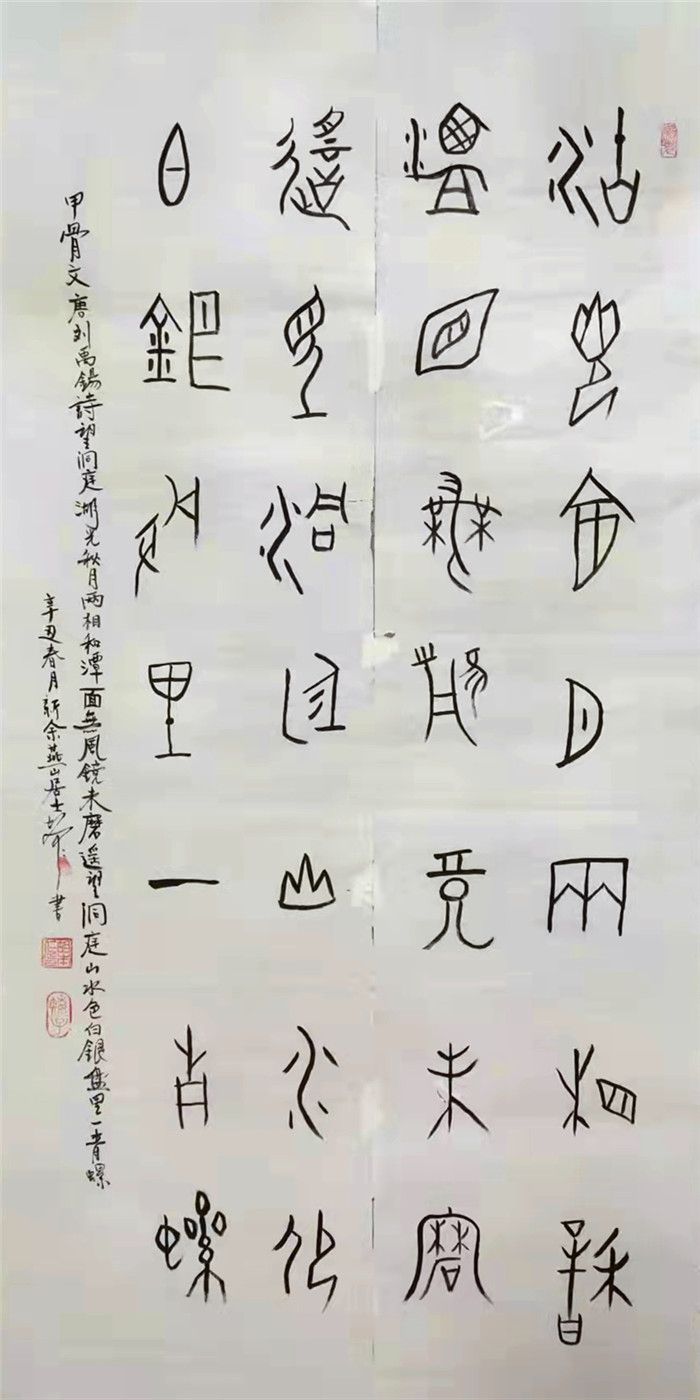 湖光秋月兩相和
潭面無風鏡未磨
遥望洞庭山水色
白銀盤里一青螺
甲骨文唐刘禹錫詩望洞庭湖光秋月两相和潭面無風鏡未磨遥望洞庭山水色白銀盘里一青螺
辛丑春月新余燕山居士書